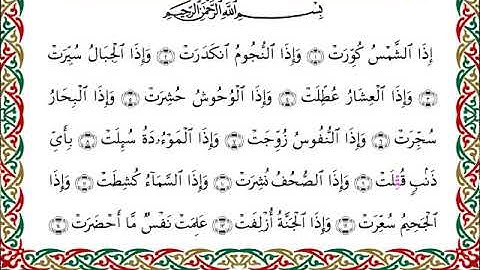 بِسْمِ ٱللَّهِ ٱلرَّحْمَٰنِ ٱلرَّحِيمِ
إِذَا ٱلشَّمْسُ كُوِّرَتْ ۝١ وَإِذَا ٱلنُّجُومُ ٱنكَدَرَتْ ۝٢ وَإِذَا ٱلْجِبَالُ سُيِّرَتْ
۝٣ وَإِذَا ٱلْعِشَارُ عُطِّلَتْ ۝٤ وَإِذَا ٱلْوُحُوشُ حُشِرَتْ ۝٥ وَإِذَا ٱلْبِحَارُ
سُجِّرَتْ ۝٦ وَإِذَا ٱلنُّفُوسُ زُوِّجَتْ ۝٧ وَإِذَا ٱلْمَوْءُۥدَةُ سُئِلَتْ ۝٨ بِأَيِّ
ذَنۢبٍ قُتِلَتْ ۝٩ وَإِذَا ٱلصُّحُفُ نُشِرَتْ ۝١٠ وَإِذَا ٱلسَّمَآءُ كُشِطَتْ ۝١١ وَإِذَا
ٱلْجَحِيمُ سُعِّرَتْ ۝١٢ وَإِذَا ٱلْجَنَّةُ أُزْلِفَتْ ۝١٣ عَلِمَتْ نَفْسٌ مَّآ أَحْضَرَتْ ۝١٤